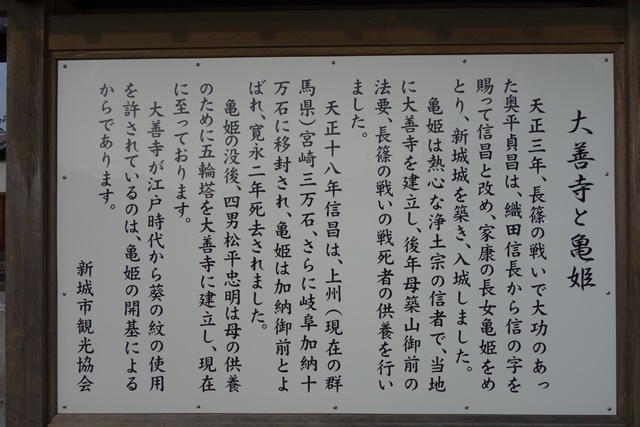 大善寺と亀姫
天正三年、長篠の戦いで大功のあっ
た奥平貞昌は、織田信長から信の字を
賜って信昌と改め、家康の長女亀姫をめ
とり、新城城を築き、入城しました。
亀姫は熱心な浄土宗の信者で、当地
に大善寺を建立し、後年母築山御前の
法要、長篠の戦いの戦死者の供養を行い
ました。
天正十八年信昌は、上州（現在の群
馬県）宮崎三万石、さらに岐阜加納十
万石に移封され、亀姫は加納御前とよ
ばれ、寛永二年死去されました。
亀姫の没後、四男松平忠明は母の供養
のために五輪塔を大善寺に建立し、現在
に至っております。
大善寺が江戸時代から葵の紋の使用
を許されているのは、亀姫の開基による
からであります。
新城市観光協会